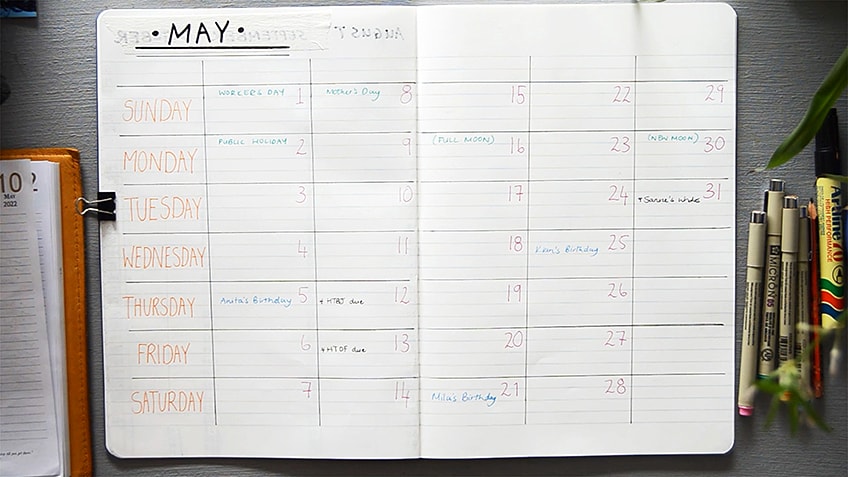 • MAY •
AUGUST
SUNDAY WORKERS DAY 1 Mother's Day 8 15 22 29
MONDAY PUBLIC HOLIDAY 2 9 (FULL MOON) 16 23 (NEW MOON) 30
TUESDAY 3 10 17 24 31
WEDNESDAY 4 11 18 Kian's Birthday 25
THURSDAY Anita's Birthday 5 HTBJ due 12 19 26
FRIDAY 6 HTOF due 13 20 27
SATURDAY 7 14 Mila's Birthday 21 28
10
May
2022
MICRON
Artline
HIGH PERFORMANCE